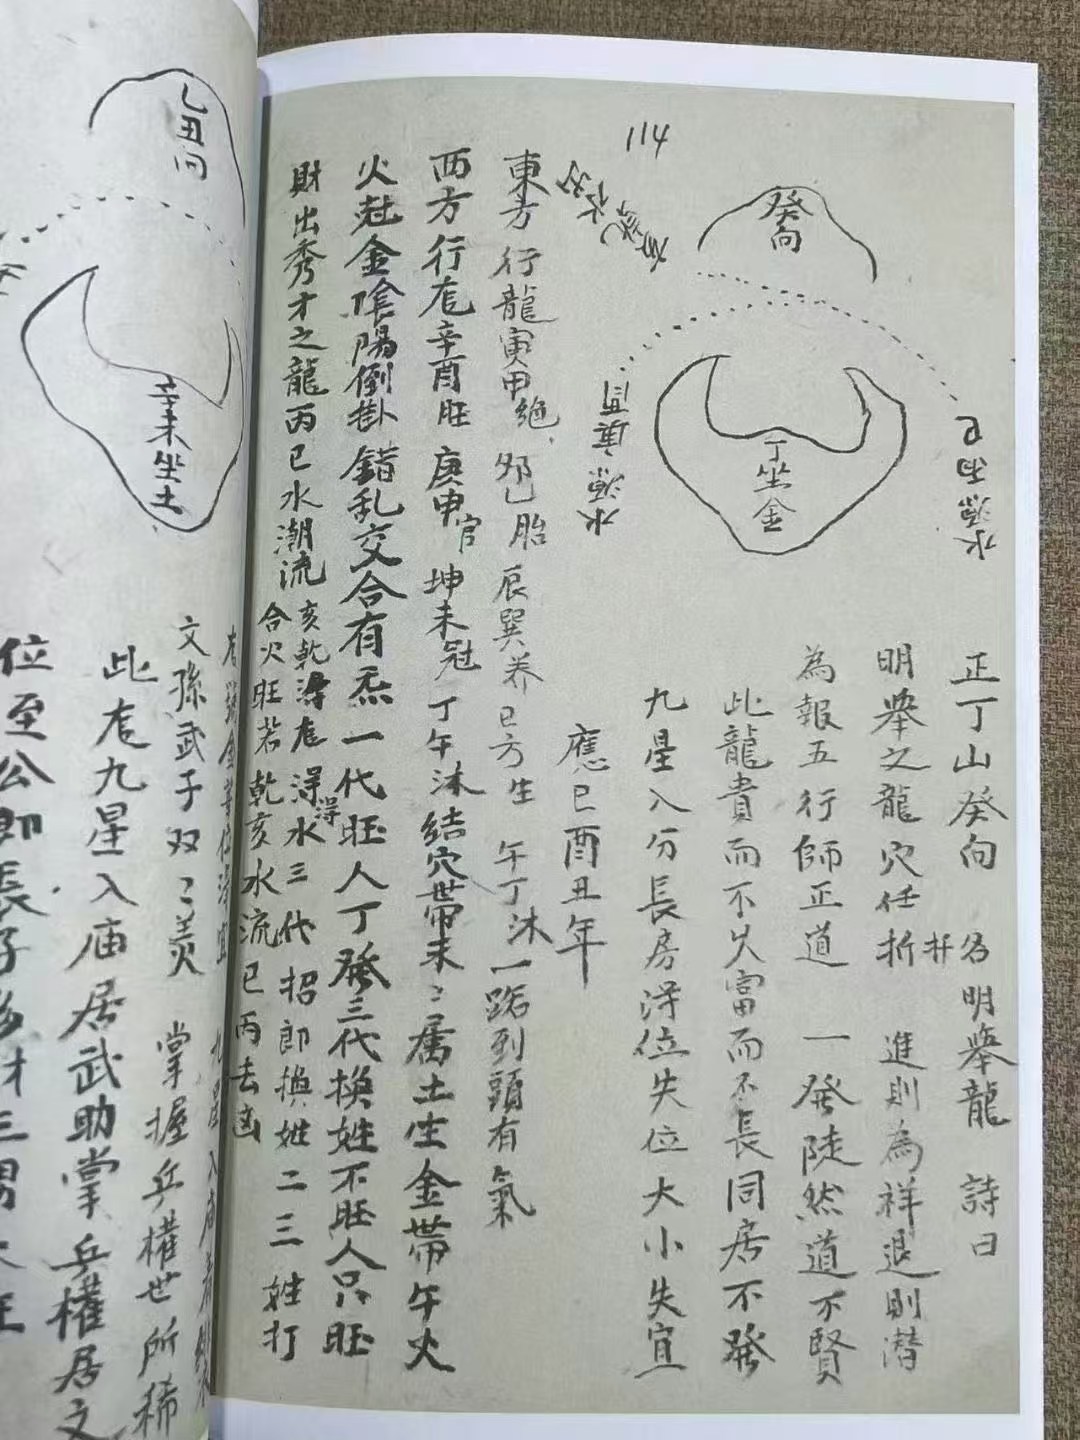 114
癸向
丁坐金
水源寅同
水源丙巳
正丁山癸向 名明舉龍 詩曰
明舉之龍穴任折 进則為祥退則潜
拆
為報五行師正道 一發陡然道不賢
此龍貴而不久富而不長同居不發
九星入分長房淂位失位大小失宜
應巳酉丑年
東方行龍寅甲绝 夘乙胎 辰巽养 巳方生 午丁沐一路到頭有氣
西方行龙辛酉旺 庚申官 坤未冠 丁午沐結穴帶未〻属土生金帶午火
火尅金陰陽倒掛錯乱交合有炁一代旺人丁發三代換姓不旺人只旺
財出秀才之龍丙巳水潮流亥乾淂龙淂水三代招郎換姓二三姓打
得
合火旺若乾亥水流巳丙去凶
乙丑向
辛未坐土
九星入庙
文孫武子双〻美 掌握乒權世所稀
此龙九星入庙居武助掌乒權居文
位至公即長子多才三男